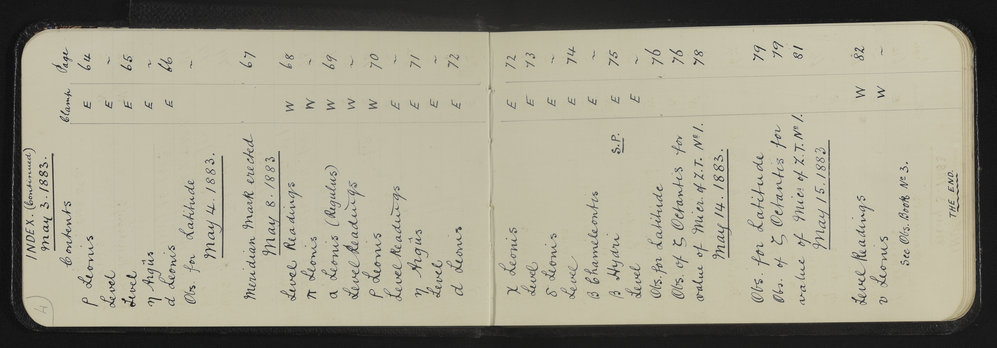 4)
INDEX. (continued)
May 3. 1883.
Contents Clamp. Page
ρ Leonis E 64
Level E "
Level E 65
η Argûs E "
d Leonis E 66
Obs. for Latitude "
May 4. 1883.
Meridian Mark erected 67
May 8. 1883
Level Readings W 68
π Leonis W "
α Leonis (Regulus) W 69
Level Readings W "
ρ Leonis W 70
Level Readings E "
η Argûs E 71
Level E "
d Leonis E 72
χ Leonis E 72
Level E 73
δ Leonis E "
Level E 74
β Chameleontis E "
β Hydri S.P. E 75
Level E "
Obs. for Latitude 76
Obs. of ζ Octantis for 76
value of Micr. of Z.T. No 1. 78
May 14. 1883.
Obs. for Latitude 79
Obs. of ζ Octantis for 79
value of Micr of Z.T. No 1. 81
May 15. 1883
Level Readings W 82
ν Leonis W "
See Obs. Book No 3.
THE END.